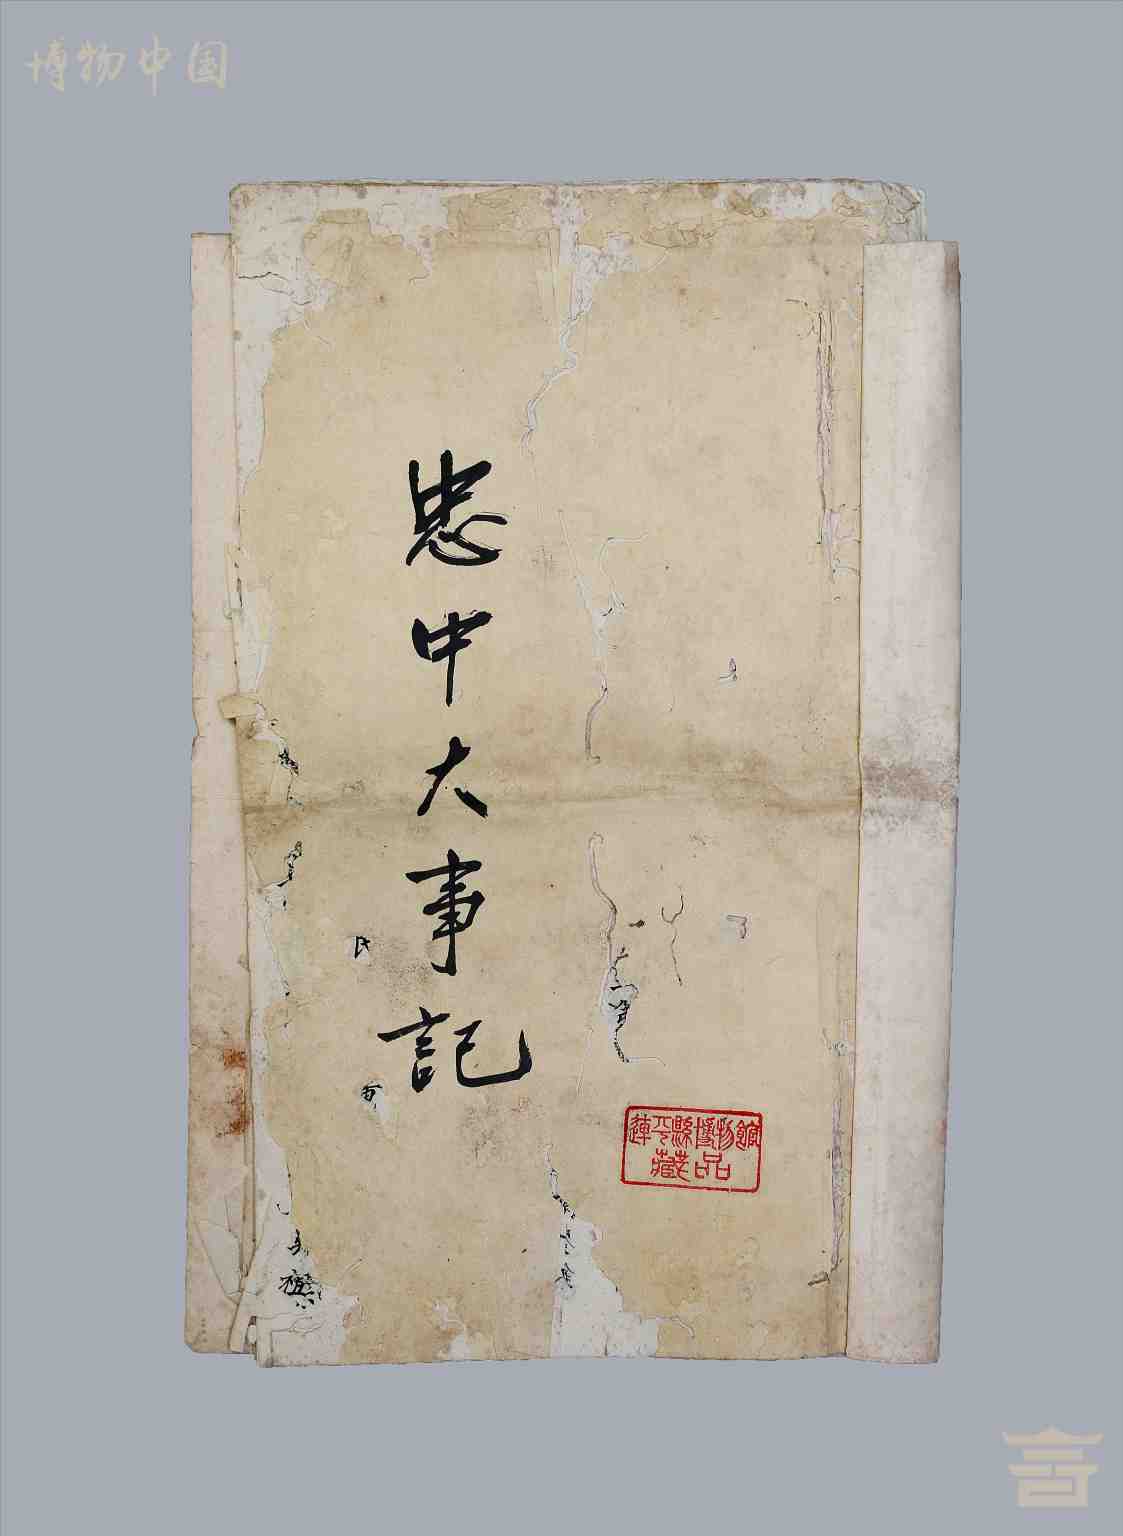 博物中国
忠中大事記
連平縣博物館
藏品
民